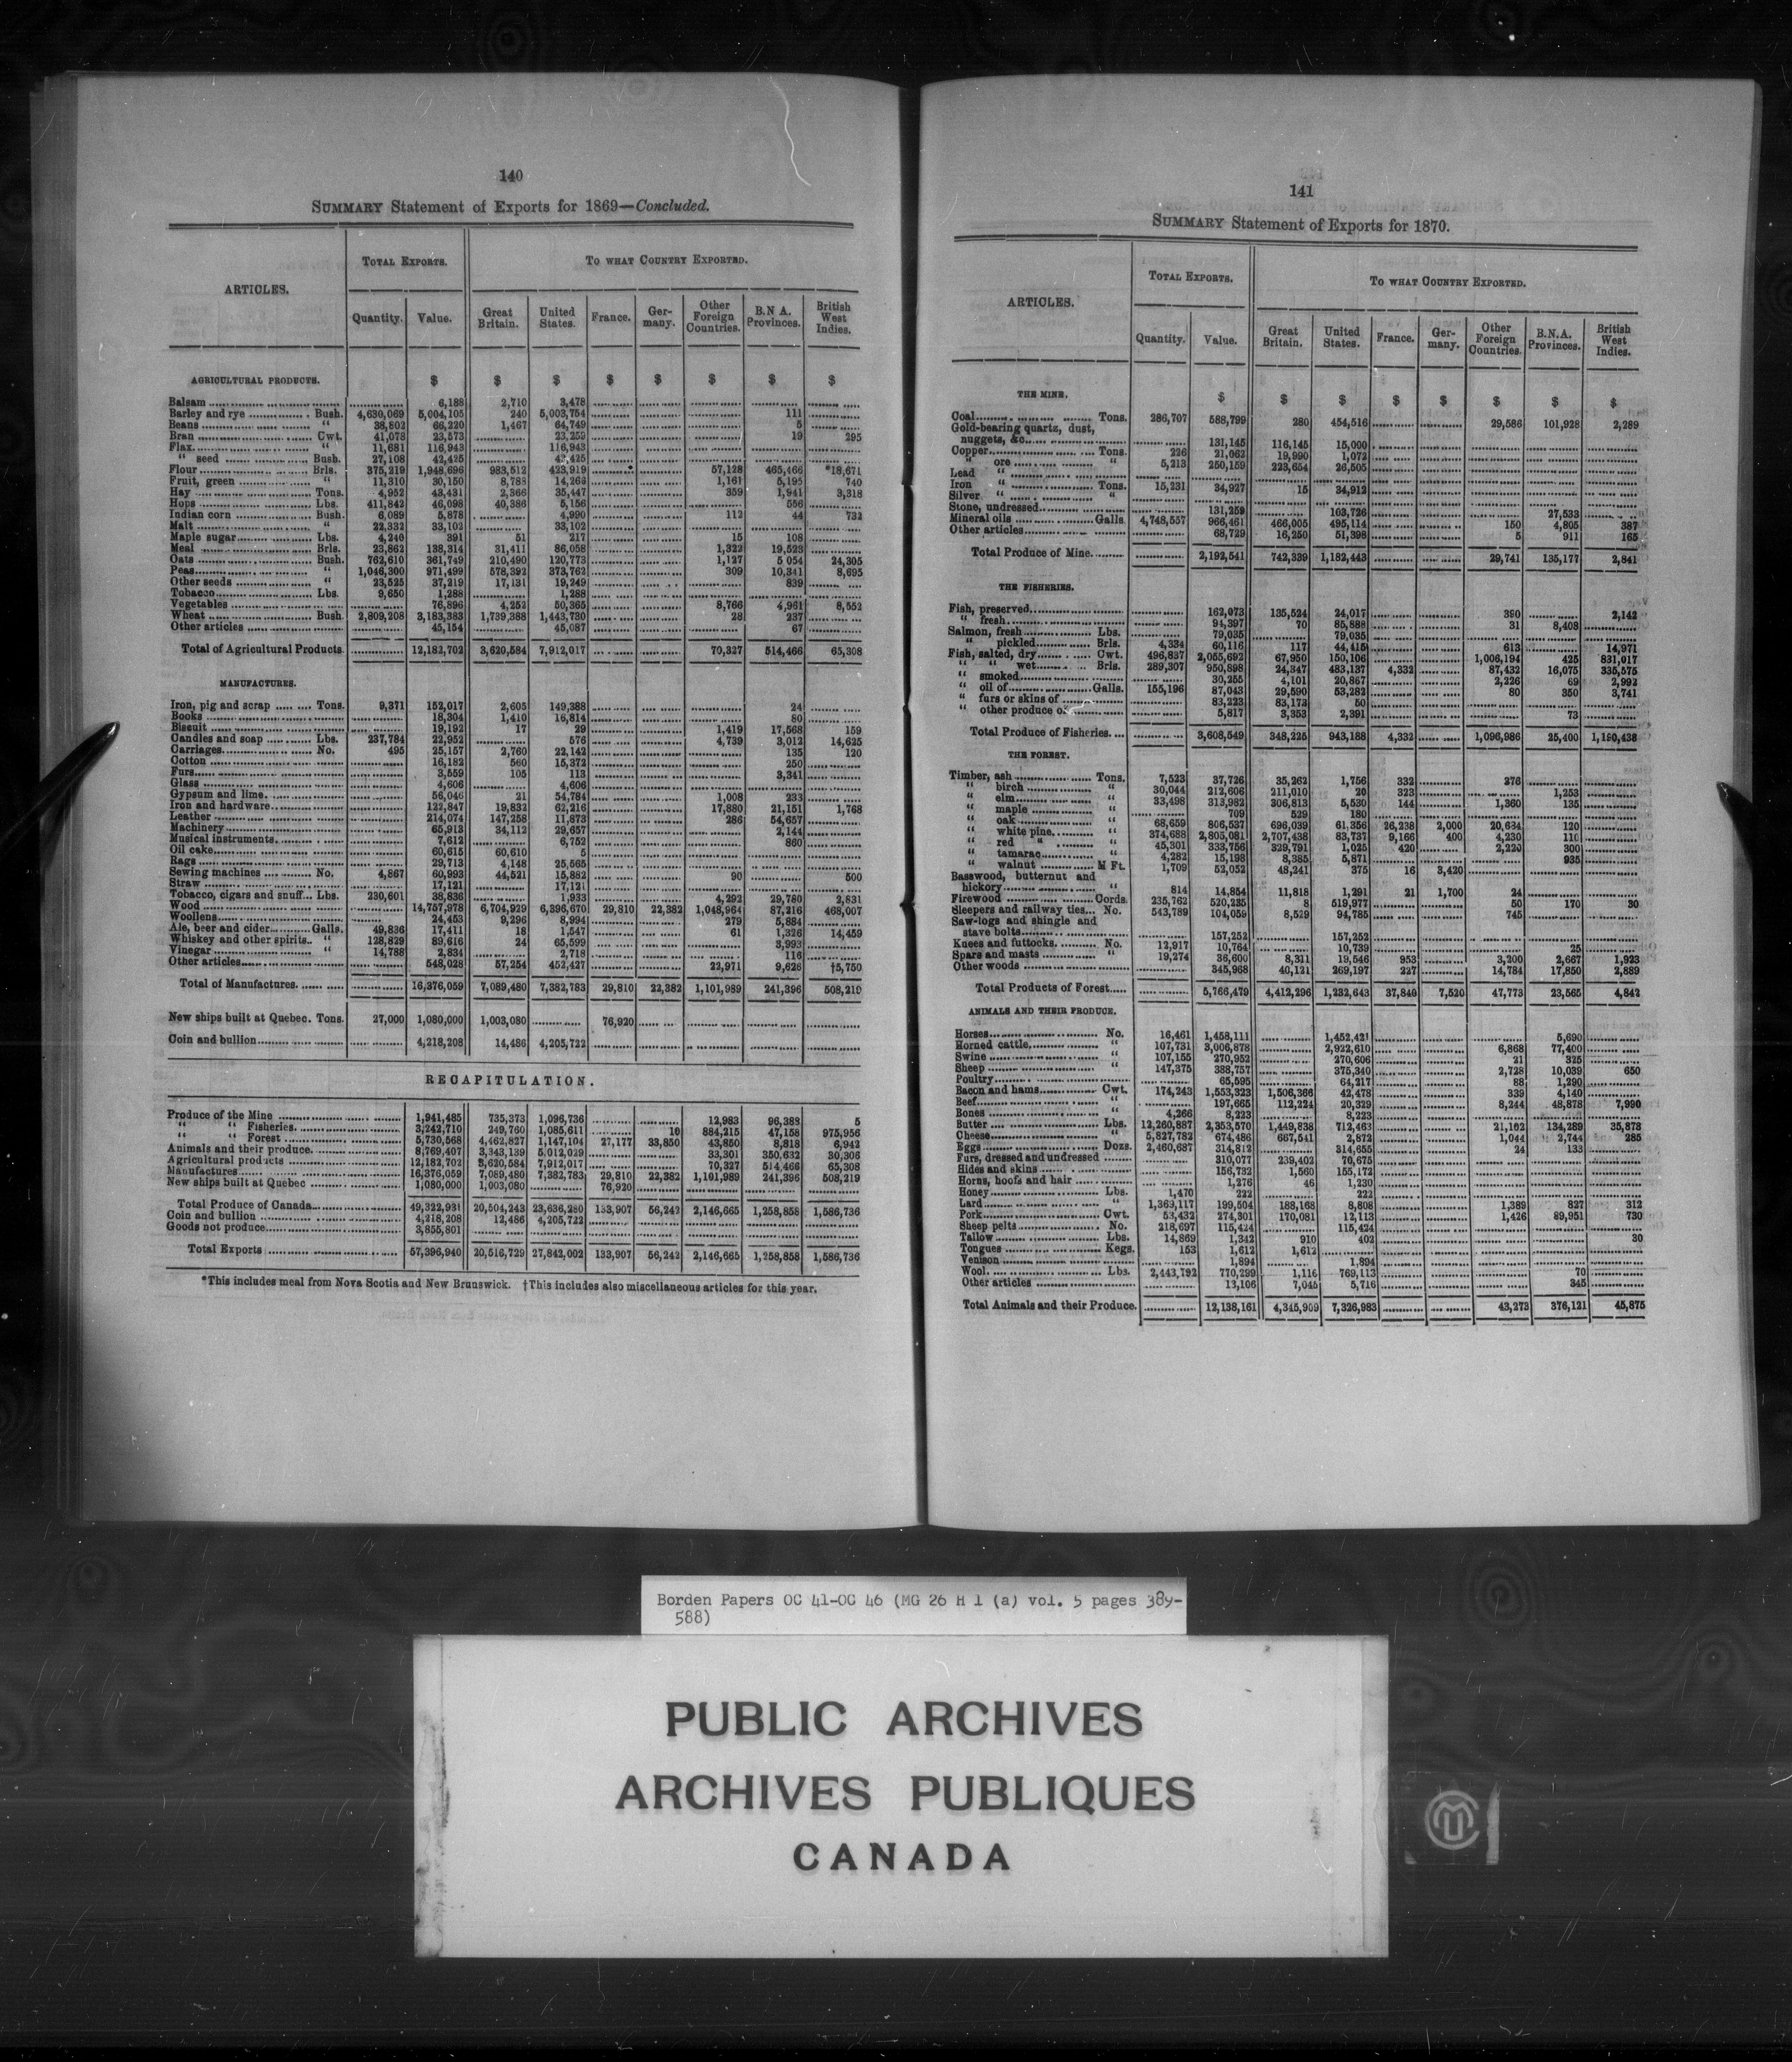 140
SUMMARY Statement of Exports for 1869—Concluded.
ARTICLES. TOTAL EXPORTS. TO WHAT COUNTRY EXPORTED.
Quantity. Value. Great Britain. United States. France. Germany. Other Foreign Countries. B.N A. Provinces. British West Indies.
AGRICULTURAL PRODUCTS. $ $ $ $ $ $ $ $
Balsam 6,188 2,710 3,478
Barley and rye Bush. 4,630,069 5,004,105 240 5,003,754 111
Beans " 38,802 66,220 1,467 64,749 5
Bran Cwt. 41,078 23,573 23,259 19 295
Flax " 11,681 116,943 116,943
" seed Bush. 27,108 42,425 42,425
Flour Brls. 375,219 1,948,696 983,512 423,919 57,128 465,466 *18,671
Fruit, green " 11,310 30,150 8,788 14,266 1,161 5,195 740
Hay Tons. 4,952 43,431 2,366 35,447 359 1,941 3,318
Hops Lbs. 411,842 46,098 40,386 5,156 556
Indian corn Bush. 6,089 5,878 4,990 112 44 732
Malt " 22,332 33,102 33,102
Maple sugar Lbs. 4,240 391 51 217 15 108
Meal Brls. 23,862 138,314 31,411 86,058 1,322 19,523
Oats Bush. 762,610 361,749 210,490 120,773 1,127 5 054 24,305
Peas " 1,046,300 971,499 578,392 373,762 309 10,341 8,695
Other seeds " 23,525 37,219 17,131 19,249 839
Tobacco Lbs. 9,650 1,288 1,288
Vegetables 76,896 4,252 50,365 8,766 4,961 8,552
Wheat Bush. 2,809,208 3,183,383 1,739,388 1,443,730 28 237
Other articles 45,154 45,087 67
Total of Agricultural Products 12,182,702 3,620,584 7,912,017 70,327 514,466 65,308
MANUFACTURES.
Iron, pig and scrap Tons. 9,371 152,017 2,605 149,388 24
Books 18,304 1,410 16,814 80
Biscuit 19,192 17 29 1,419 17,568 159
Candles and soap Lbs. 237,784 22,952 576 4,739 3,012 14,625
Carriages No. 495 25,157 2,760 22,142 135 120
Cotton 16,182 560 15,372 250
Furs 3,559 105 113 3,341
Glass 4,606 4,606
Gypsum and lime 56,046 21 54,784 1,008 233
Iron and hardware 122,847 19,832 62,216 17,880 21,151 1,768
Leather 214,074 147,258 11,873 286 54,657
Machinery 65,913 34,112 29,657 2,144
Musical instruments 7,612 6,752 860
Oil cake 60,615 60,610 5
Rags 29,713 4,148 25,565
Sewing machines No. 4,867 60,993 44,521 15,882 90 500
Straw 17,121 17,121
Tobacco, cigars and snuff Lbs. 230,601 38,836 1,933 4,292 29,780 2,831
Wood 14,757,978 6,704,929 6,396,670 29,810 22,382 1,048,964 87,216 468,007
Woollens 24,453 9,296 8,994 279 5,884
Ale, beer and cider Galls. 49,836 17,411 18 1,547 61 1,326 14,459
Whiskey and other spirits " 128,829 89,616 24 65,599 3,993
Vinegar " 14,788 2,834 2,718 116
Other articles 548,028 57,254 452,427 22,971 9,626 †5,750
Total of Manufactures 16,376,059 7,089,480 7,382,783 29,810 22,382 1,101,989 241,396 508,219
New ships built at Quebec. Tons. 27,000 1,080,000 1,003,080 76,920
Coin and bullion 4,218,208 14,486 4,205,722
RECAPITULATION.
Produce of the Mine 1,941,485 735,373 1,096,736 12,983 96,388 5
" " Fisheries. 3,242,710 249,760 1,085,611 10 884,215 47,158 975,956
" " Forest 5,730,568 4,462,827 1,147,104 27,177 33,850 43,850 8,818 6,942
Animals and their produce 8,769,407 3,343,139 5,012,029 33,301 350,632 30,306
Agricultural products 12,182,702 3,620,584 7,912,017 70,327 514,466 65,308
Manufactures 16,376,059 7,089,480 7,382,783 29,810 22,382 1,101,989 241,396 508,219
New ships built at Quebec 1,080,000 1,003,080 76,920
Total Produce of Canada 49,322,931 20,504,243 23,636,280 133,907 56,242 2,146,665 1,258,858 1,586,736
Coin and bullion 4,218,208 12,486 4,205,722
Goods not produce 3,855,801
Total Exports 57,396,940 20,516,729 27,842,002 133,907 56,242 2,146,665 1,258,858 1,586,736
*This includes meal from Nova Scotia and New Brunswick. †This includes also miscellaneous articles for this year.
141
SUMMARY Statement of Exports for 1870.
ARTICLES. TOTAL EXPORTS. TO WHAT COUNTRY EXPORTED.
Quantity. Value. Great Britain. United States. France. Germany. Other Foreign Countries. B.N.A. Provinces. British West Indies.
THE MINE. $ $ $ $ $ $ $ $
Coal Tons. 286,707 588,799 280 454,516 29,586 101,928 2,289
Gold-bearing quartz, dust,
nuggets, &c. 131,145 116,145 15,000
Copper Tons. 226 21,062 19,990 1,072
" ore " 5,213 250,159 223,654 26,505
Lead "
Iron " Tons. 15,231 34,927 15 34,912
Silver " "
Stone, undressed 131,259 103,726 27,533
Mineral oils Galls. 4,748,557 966,461 466,005 495,114 150 4,805 387
Other articles 68,729 16,250 51,398 5 911 165
Total Produce of Mine 2,192,541 742,339 1,182,443 29,741 135,177 2,841
THE FISHERIES.
Fish, preserved 162,073 135,524 24,017 390 2,142
" fresh 94,397 70 85,888 31 8,408
Salmon, fresh Lbs. 79,035 79,035
" pickled Brls. 4,334 60,116 117 44,415 613 14,971
Fish, salted, dry Cwt. 496,837 2,055,692 67,950 150,106 1,006,194 425 831,017
" " wet Brls. 289,307 950,898 24,347 483,137 4,332 87,432 16,075 335,575
" smoked 30,255 4,101 20,867 2,226 69 2,992
" oil of Galls. 155,196 87,043 29,590 53,282 80 350 3,741
" furs or skins of 83,223 83,173 50
" other produce of 5,817 3,353 2,391 73
Total Produce of Fisheries 3,608,549 348,225 943,188 4,332 1,096,986 25,400 1,190,438
THE FOREST.
Timber, ash Tons. 7,523 37,726 35,262 1,756 332 376
" birch " 30,044 212,606 211,010 20 323 1,253
" elm " 33,498 313,982 306,813 5,530 144 1,360 135
" maple " 709 529 180
" oak " 68,659 806,537 696,039 61,356 26,238 2,000 20,634 120
" white pine " 374,688 2,805,081 2,707,438 83,737 9,166 400 4,230 110
" red " " 45,301 333,756 329,791 1,025 420 2,220 300
" tamarac " 4,282 15,198 8,385 5,871 935
" walnut M Ft. 1,709 52,052 48,241 375 16 3,420
Basswood, butternut and
hickory " 814 14,854 11,818 1,291 21 1,700 24
Firewood Cords. 235,762 520,235 8 519,977 50 170 30
Sleepers and railway ties No. 543,789 104,059 8,529 94,785 745
Saw-logs and shingle and
stave bolts 157,252 157,252
Knees and futtocks No. 12,917 10,764 10,739 25
Spars and masts " 19,274 36,600 8,311 19,546 953 3,200 2,667 1,923
Other woods 345,968 40,121 269,197 227 14,784 17,850 2,889
Total Products of Forest 5,766,479 4,412,296 1,232,643 37,840 7,520 47,773 23,565 4,842
ANIMALS AND THEIR PRODUCE.
Horses No. 16,461 1,458,111 1,452,421 5,690
Horned cattle " 107,731 3,006,878 2,922,610 6,868 77,400
Swine " 107,155 270,952 270,606 21 325
Sheep " 147,375 388,757 375,340 2,728 10,039 650
Poultry 65,595 64,217 88 1,290
Bacon and hams Cwt. 174,243 1,553,323 1,506,366 42,478 339 4,140
Beef " 197,665 112,224 20,329 8,244 48,878 7,990
Bones " 4,266 8,223 8,223
Butter Lbs. 12,260,887 2,353,570 1,449,838 712,463 21,102 134,289 35,878
Cheese " 5,827,782 674,486 667,541 2,872 1,044 2,744 285
Eggs Dozs. 2,460,687 314,812 314,655 24 133
Furs, dressed and undressed 310,077 239,402 70,675
Hides and skins 156,732 1,560 155,172
Horns, hoofs and hair 1,276 46 1,230
Honey Lbs. 1,470 222 222
Lard " 1,369,117 199,504 188,168 8,808 1,389 827 312
Pork Cwt. 53,432 274,301 170,081 12,113 1,426 89,951 730
Sheep pelts No. 218,697 115,424 115,424
Tallow Lbs. 14,869 1,342 910 402 30
Tongues Kegs. 153 1,612 1,612
Venison 1,894 1,894
Wool Lbs. 2,443,792 770,299 1,116 769,113 70
Other articles 13,106 7,045 5,716 345
Total Animals and their Produce. 12,138,161 4,345,909 7,326,983 43,273 376,121 45,875
Borden Papers OC 41-OC 46 (MG 26 H 1 (a) vol. 5 pages 389-
588)
PUBLIC ARCHIVES
ARCHIVES PUBLIQUES
CANADA